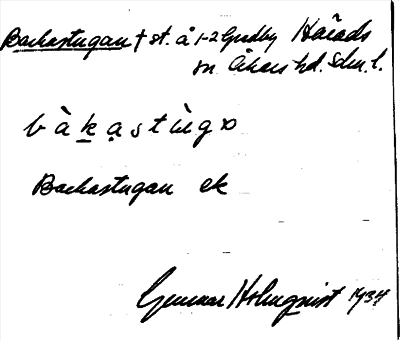 Backastugan † st. å 1-2 Ljudby Härads
sn Åkers hd. Sdm. l.
bàkastùgo
Backastugan ek
Gunnar Holmquist 1934